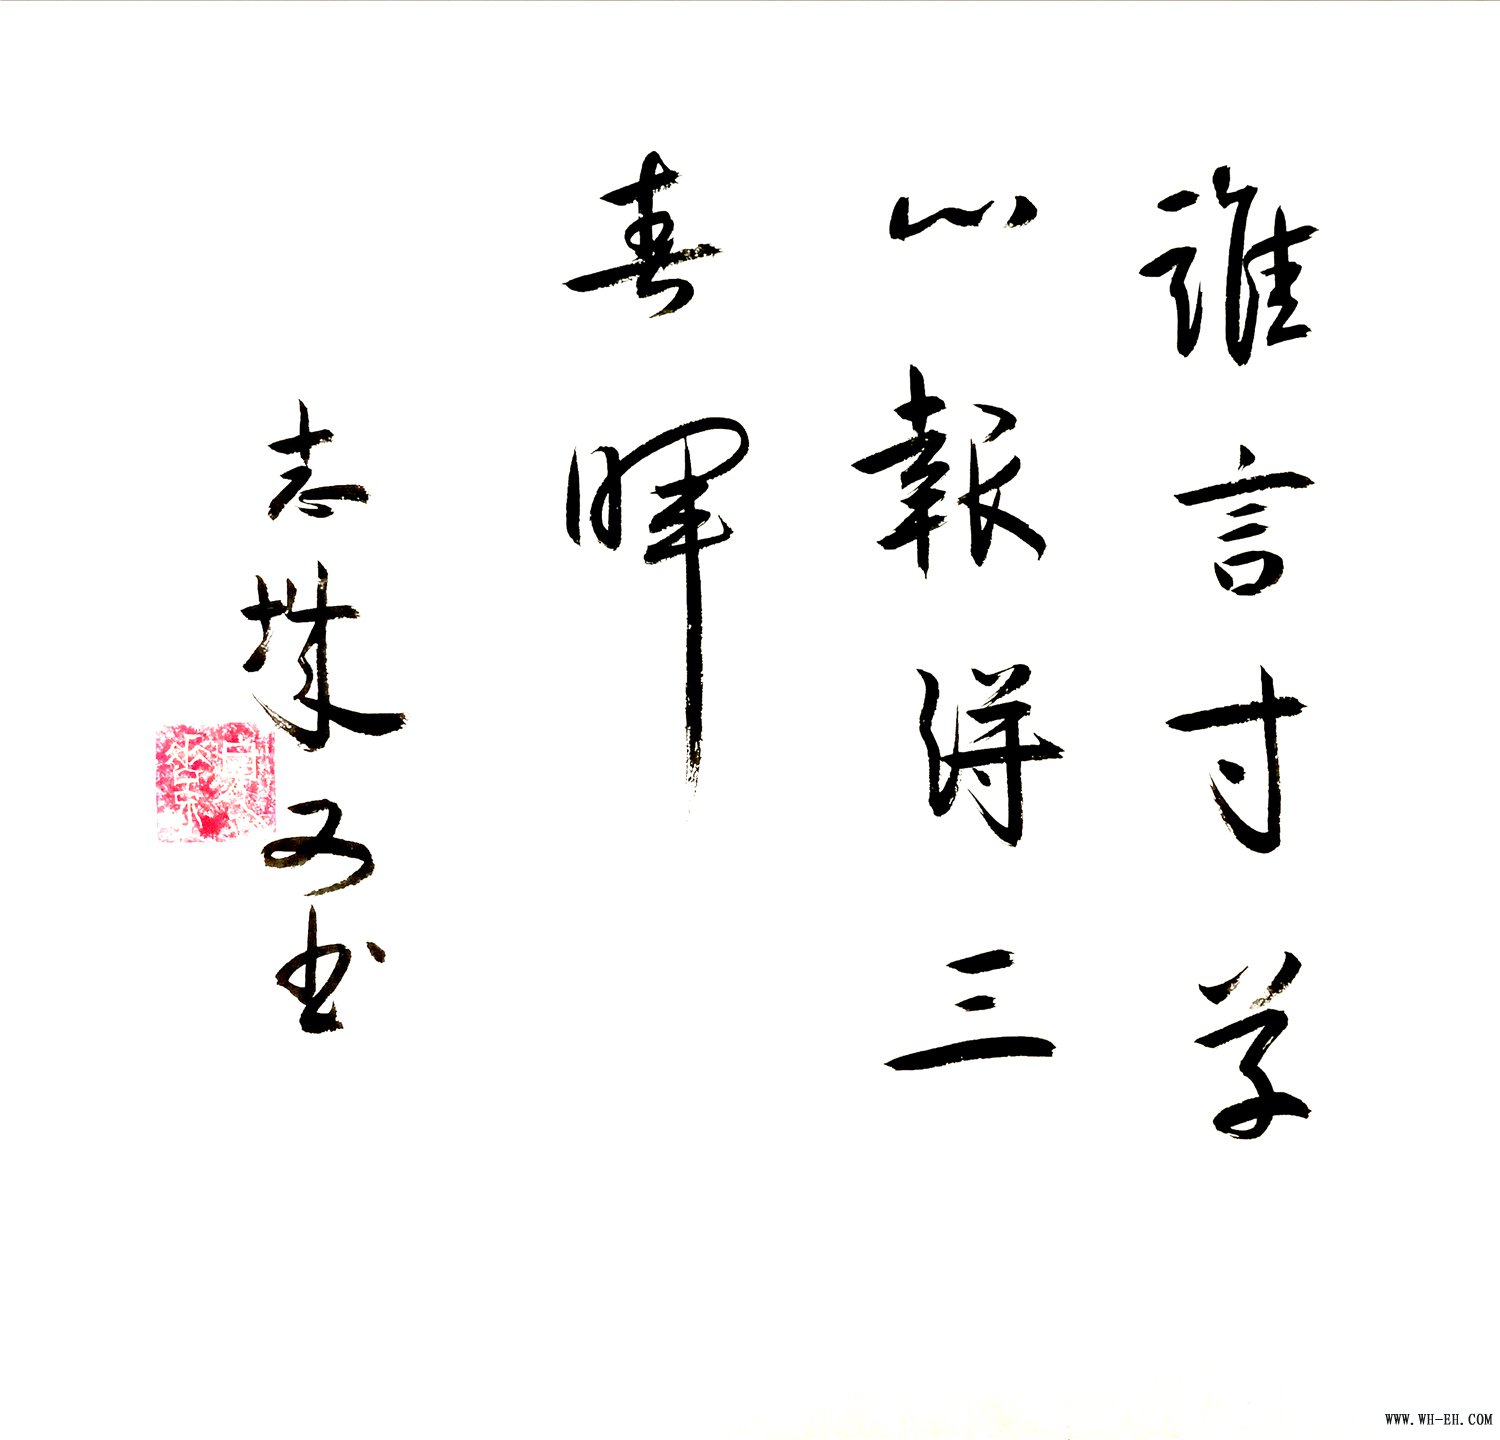 誰言寸草
心報得三
春暉
志 书
WWW.WH-EH.COM